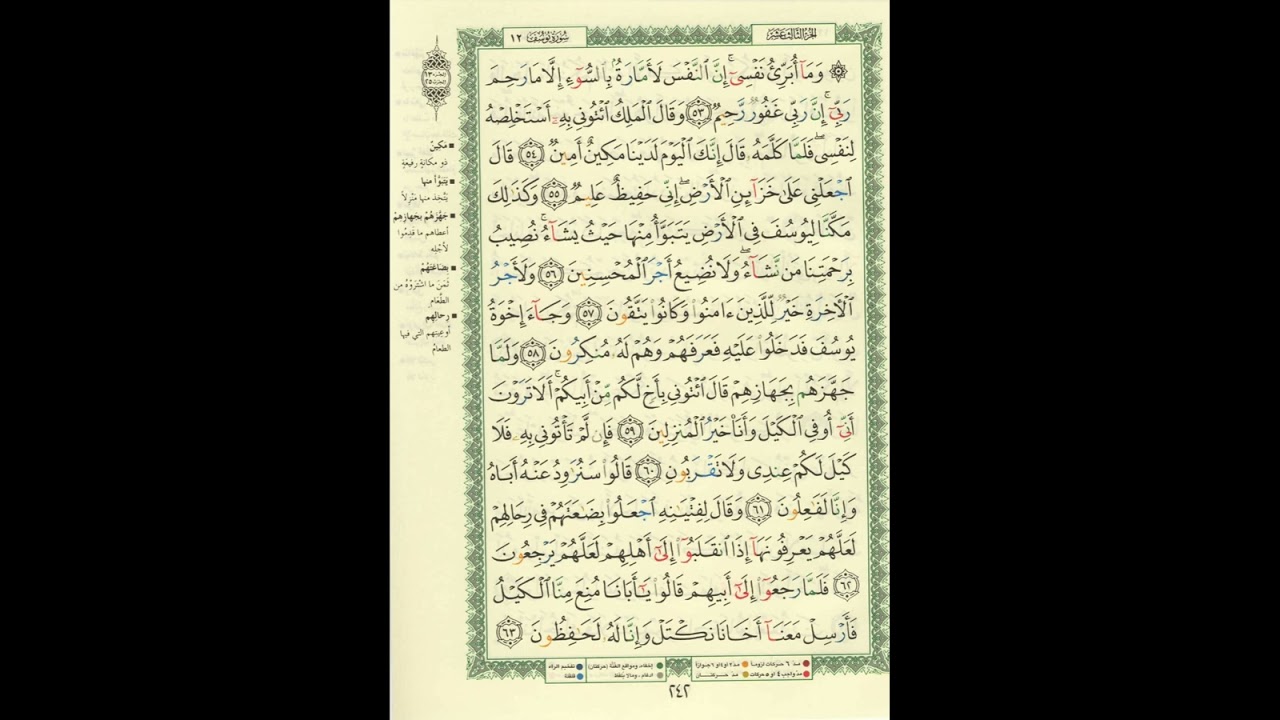 الجزء الثالث عشر
سورة يوسف ١٢
۞ وَمَآ أُبَرِّئُ نَفْسِىٓ ۚ إِنَّ ٱلنَّفْسَ لَأَمَّارَةٌۢ بِٱلسُّوٓءِ إِلَّا مَا رَحِمَ
رَبِّىٓ ۚ إِنَّ رَبِّى غَفُورٌ رَّحِيمٌ ﴿٥٣﴾ وَقَالَ ٱلْمَلِكُ ٱئْتُونِى بِهِۦٓ أَسْتَخْلِصْهُ
لِنَفْسِى ۖ فَلَمَّا كَلَّمَهُۥ قَالَ إِنَّكَ ٱلْيَوْمَ لَدَيْنَا مَكِينٌ أَمِينٌ ﴿٥٤﴾ قَالَ
ٱجْعَلْنِى عَلَىٰ خَزَآئِنِ ٱلْأَرْضِ ۖ إِنِّى حَفِيظٌ عَلِيمٌ ﴿٥٥﴾ وَكَذَٰلِكَ
مَكَّنَّا لِيُوسُفَ فِى ٱلْأَرْضِ يَتَبَوَّأُ مِنْهَا حَيْثُ يَشَآءُ ۚ نُصِيبُ
بِرَحْمَتِنَا مَن نَّشَآءُ ۖ وَلَا نُضِيعُ أَجْرَ ٱلْمُحْسِنِينَ ﴿٥٦﴾ وَلَأَجْرُ
ٱلْـَٔاخِرَةِ خَيْرٌ لِّلَّذِينَ ءَامَنُوا۟ وَكَانُوا۟ يَتَّقُونَ ﴿٥٧﴾ وَجَآءَ إِخْوَةُ
يُوسُفَ فَدَخَلُوا۟ عَلَيْهِ فَعَرَفَهُمْ وَهُمْ لَهُۥ مُنكِرُونَ ﴿٥٨﴾ وَلَمَّا
جَهَّزَهُم بِجَهَازِهِمْ قَالَ ٱئْتُونِى بِأَخٍ لَّكُم مِّنْ أَبِيكُمْ ۚ أَلَا تَرَوْنَ
أَنِّىٓ أُوفِى ٱلْكَيْلَ وَأَنَا۠ خَيْرُ ٱلْمُنزِلِينَ ﴿٥٩﴾ فَإِن لَّمْ تَأْتُونِى بِهِۦ فَلَا
كَيْلَ لَكُمْ عِندِى وَلَا تَقْرَبُونِ ﴿٦٠﴾ قَالُوا۟ سَنُرَٰوِدُ عَنْهُ أَبَاهُ
وَإِنَّا لَفَٰعِلُونَ ﴿٦١﴾ وَقَالَ لِفِتْيَٰنِهِ ٱجْعَلُوا۟ بِضَٰعَتَهُمْ فِى رِحَالِهِمْ
لَعَلَّهُمْ يَعْرِفُونَهَآ إِذَا ٱنقَلَبُوٓا۟ إِلَىٰٓ أَهْلِهِمْ لَعَلَّهُمْ يَرْجِعُونَ
﴿٦٢﴾ فَلَمَّا رَجَعُوٓا۟ إِلَىٰٓ أَبِيهِمْ قَالُوا۟ يَٰٓأَبَانَا مُنِعَ مِنَّا ٱلْكَيْلُ
فَأَرْسِلْ مَعَنَآ أَخَانَا نَكْتَلْ وَإِنَّا لَهُۥ لَحَٰفِظُونَ ﴿٦٣﴾
مَكينٌ
ذو مكانةٍ رفيعةٍ
يَتَبَوَّأُ منها
يتَّخذ منها منزِلاً
جَهَّزَهُمْ بجَهازِهمْ
أعطاهم ما قدِمُوا
لأجْلِهِ
بضاعَتَهُمْ
ثمنَ ما اشتَرَوْهُ مِن
الطَّعام
رحالِهِم
أوعِيتهم التي فيها
الطعامُ
مدّ ٦ حركات لزوماً
مدّ ٢ أو ٤ أو ٦ جوازاً
إخفاء، ومواقع الغُنَّة (حركتان)
تفخيم الراء
مدّ واجب ٤ أو ٥ حركات
مدّ حركتان
ادغام، ومالا يُلفَظ
قلقلة
٢٤٢